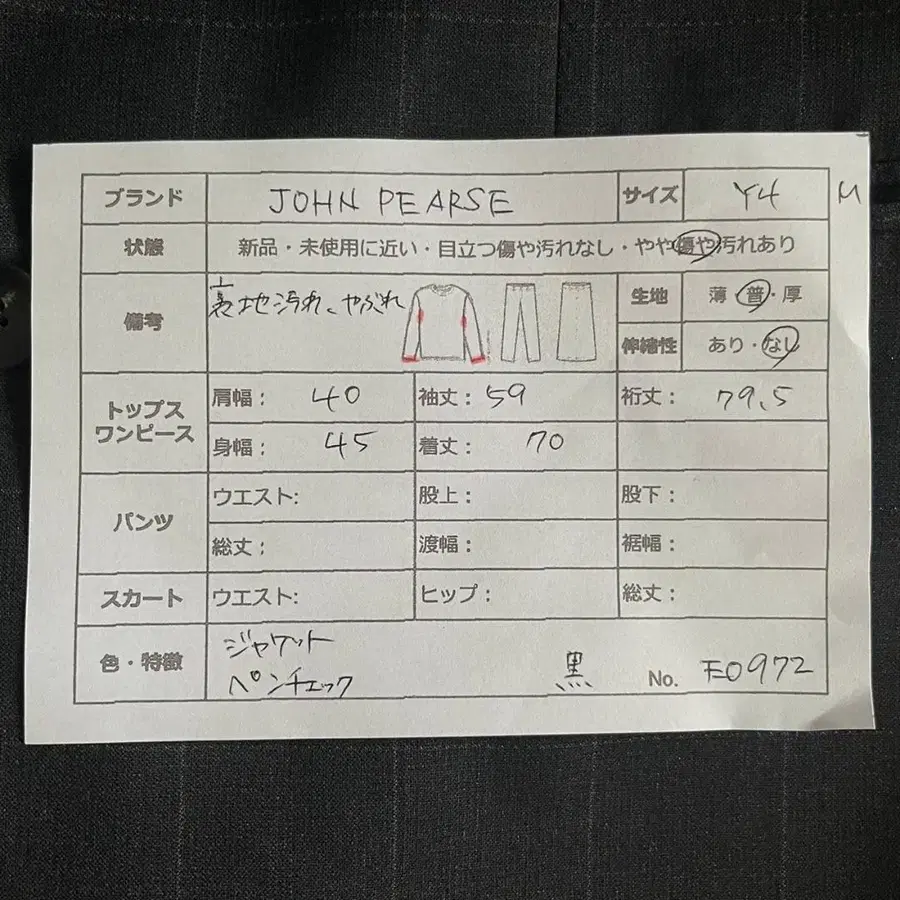 ブランド JOHN PEARSE サイズ Y4 M
状態 新品・未使用に近い・目立つ傷や汚れなし・やや傷や汚れあり
備考 裏地汚れ、やぶれ 生地 薄・普・厚
伸縮性 あり・なし
トップス
ワンピース
肩幅： 40 袖丈： 59 裄丈： 79.5
身幅： 45 着丈： 70
パンツ
ウエスト: 股上： 股下：
総丈： 渡幅： 裾幅：
スカート ウエスト: ヒップ： 総丈：
色・特徴 ジャケット
ペンチェック 黒 No. E0972